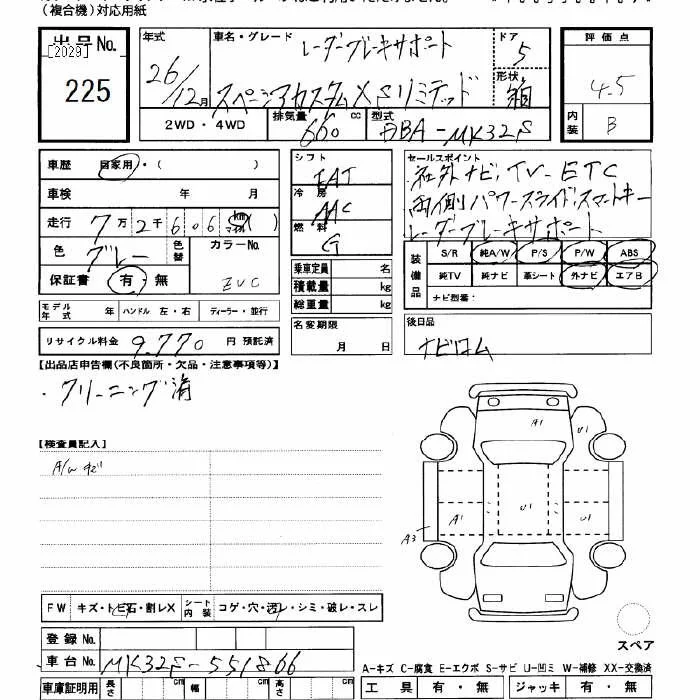 （複合機）対応用紙
出品No.
[2029]
225
年式
26/12月
車名・グレード
レーダーブレーキサポート
スペーシアカスタムXSリミテッド
ドア
5
形状
箱
評価点
4.5
内装
B
2WD・4WD
排気量
660
cc
型式
DBA-MK32S
車歴
自家用・（　　　）
車検
年　月
走行
7万2千606km（マイル）
色
グレー
色替
カラーNo.
ZVC
保証書
有・無
モデル年式
年
ハンドル 左・右
ディーラー・並行
リサイクル料金
9,770
円 預託済
シフト
FAT
冷房
AAC
燃料
G
乗車定員
名
積載量
kg
総重量
kg
名変期限
月　日
セールスポイント
社外ナビ、TV、ETC
両側パワースライド、スマートキー
レーダーブレーキサポート
装備品
S/R 純A/W P/S P/W ABS
純TV 純ナビ 革シート 外ナビ エアB
ナビ型番：
後日品
ナビロム
【出品店申告欄(不良箇所・欠品・注意事項等)】
・クリーニング済
【検査員記入】
A/wキズ
A1
U1
A1
U1
U1
A3
FW
キズ・トビ石・割レX
シート内装
コゲ・穴・汚レ・シミ・破レ・スレ
スペア
登録No.
車台No.
MK32S-551866
A-キズ C-腐食 E-エクボ S-サビ U-凹ミ W-補修 XX-交換済
車庫証明用
長さ
cm
幅
cm
高さ
cm
工具
有・無
ジャッキ
有・無